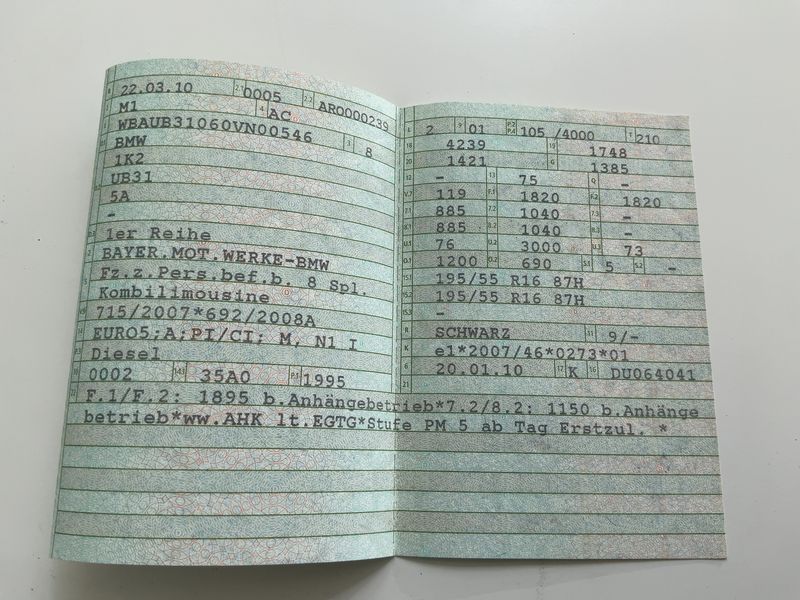 22.03.10 0005 AR0000239
M1 AC
WBAUB31060VN00546 8
BMW
1K2
UB31
5A
-
1er Reihe
BAYER.MOT.WERKE-BMW
Fz.z.Pers.bef.b. 8 Spl.
Kombilimousine
715/2007*692/2008A
EURO5;A;PI/CI; M, N1 I
Diesel
0002 35A0 1995
L 2 9 01 P.2 P.4 105 /4000 T 210
18 4239 19 1748
20 1421 G 1385
12 - 13 75 Q -
V.7 119 F.1 1820 F.2 1820
7.1 885 7.2 1040 7.3 -
8.1 885 8.2 1040 8.3 -
U.1 76 U.2 3000 U.3 73
O.1 1200 O.2 690 S.1 5 S.2 -
15.1 195/55 R16 87H
15.2 195/55 R16 87H
15.3 -
R SCHWARZ 11 9/-
K e1*2007/46*0273*01
6 20.01.10 17 K 16 DU064041
21
F.1/F.2: 1895 b.Anhängebetrieb*7.2/8.2: 1150 b.Anhänge
betrieb*ww.AHK lt.EGTG*Stufe PM 5 ab Tag Erstzul. *